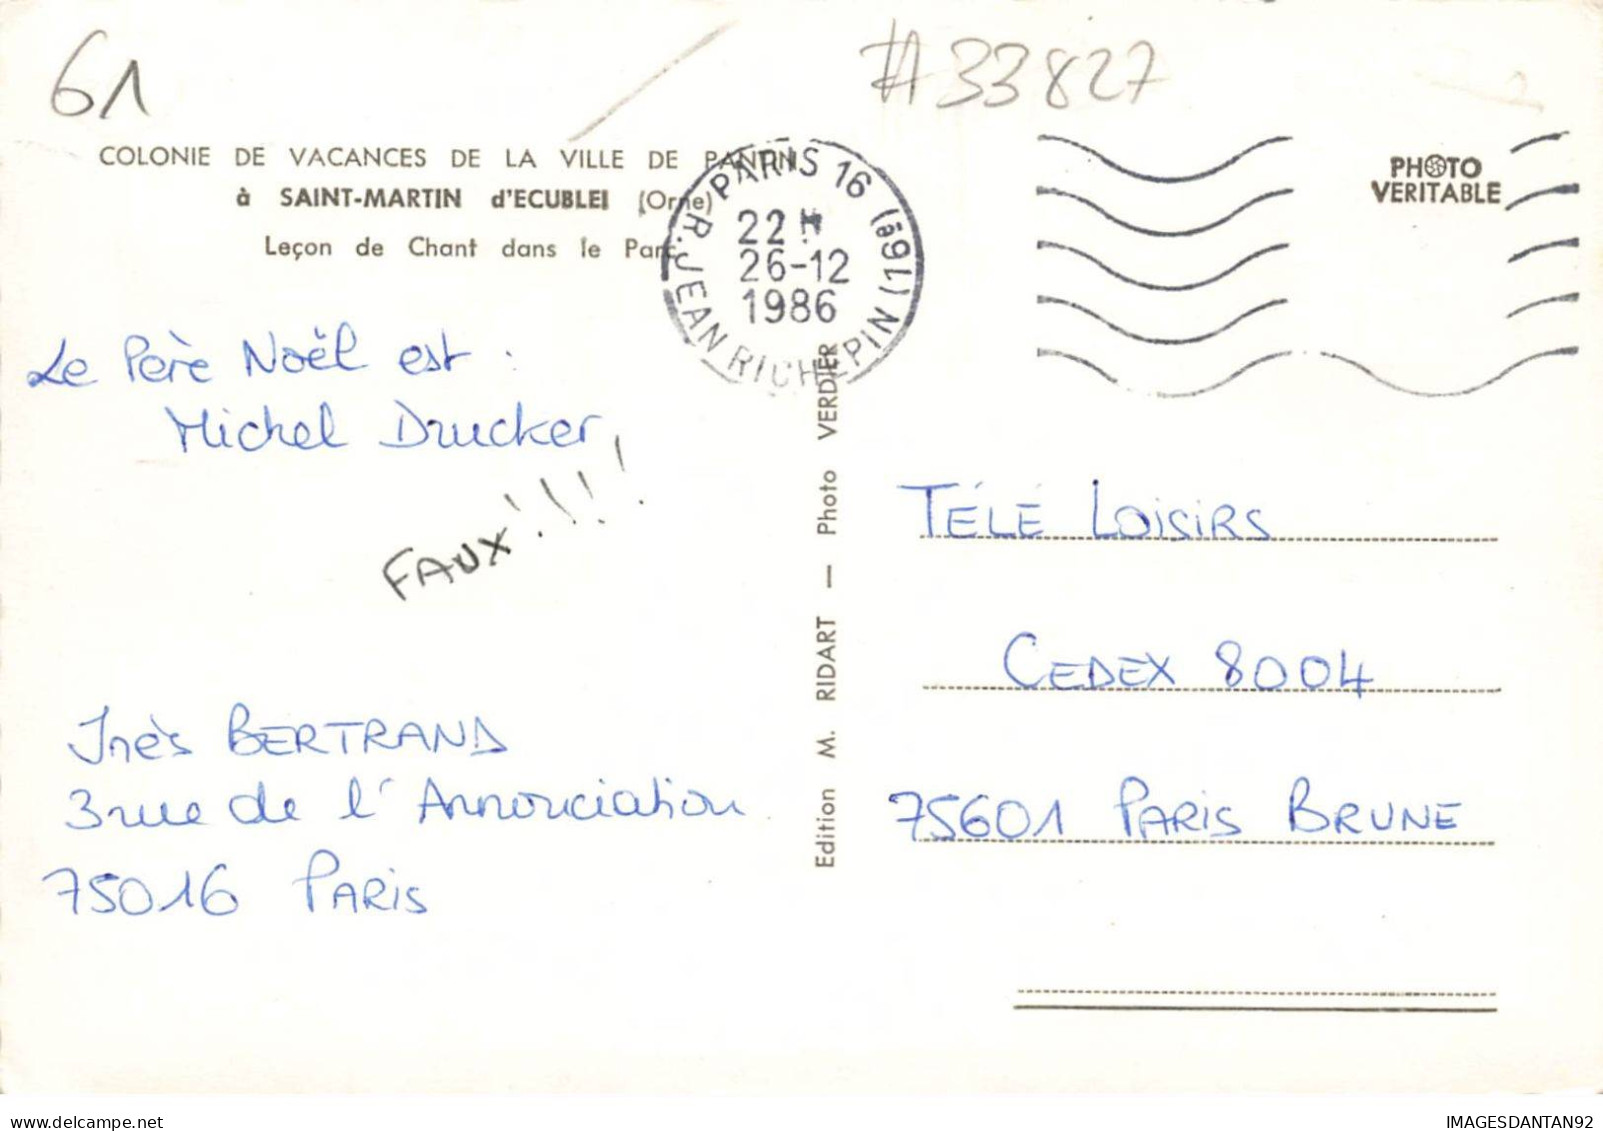 61
#33827
COLONIE DE VACANCES DE LA VILLE DE PANTIN
à SAINT-MARTIN d'ECUBLEI (Orne)
Leçon de Chant dans le Parc
PARIS 16
R. JEAN RICHEPIN (16e)
22H
26-12
1986
PHOTO
VERITABLE
Le Père Noël est :
Michel Drucker,
FAUX!!!!
Inès BERTRAND
3 rue de l'Annonciation
75016 PARIS
Edition M. RIDART — Photo VERDIER
TÉLÉ LOISIRS
CEDEX 8004
75601 PARIS BRUNE
IMAGESDANTAN92